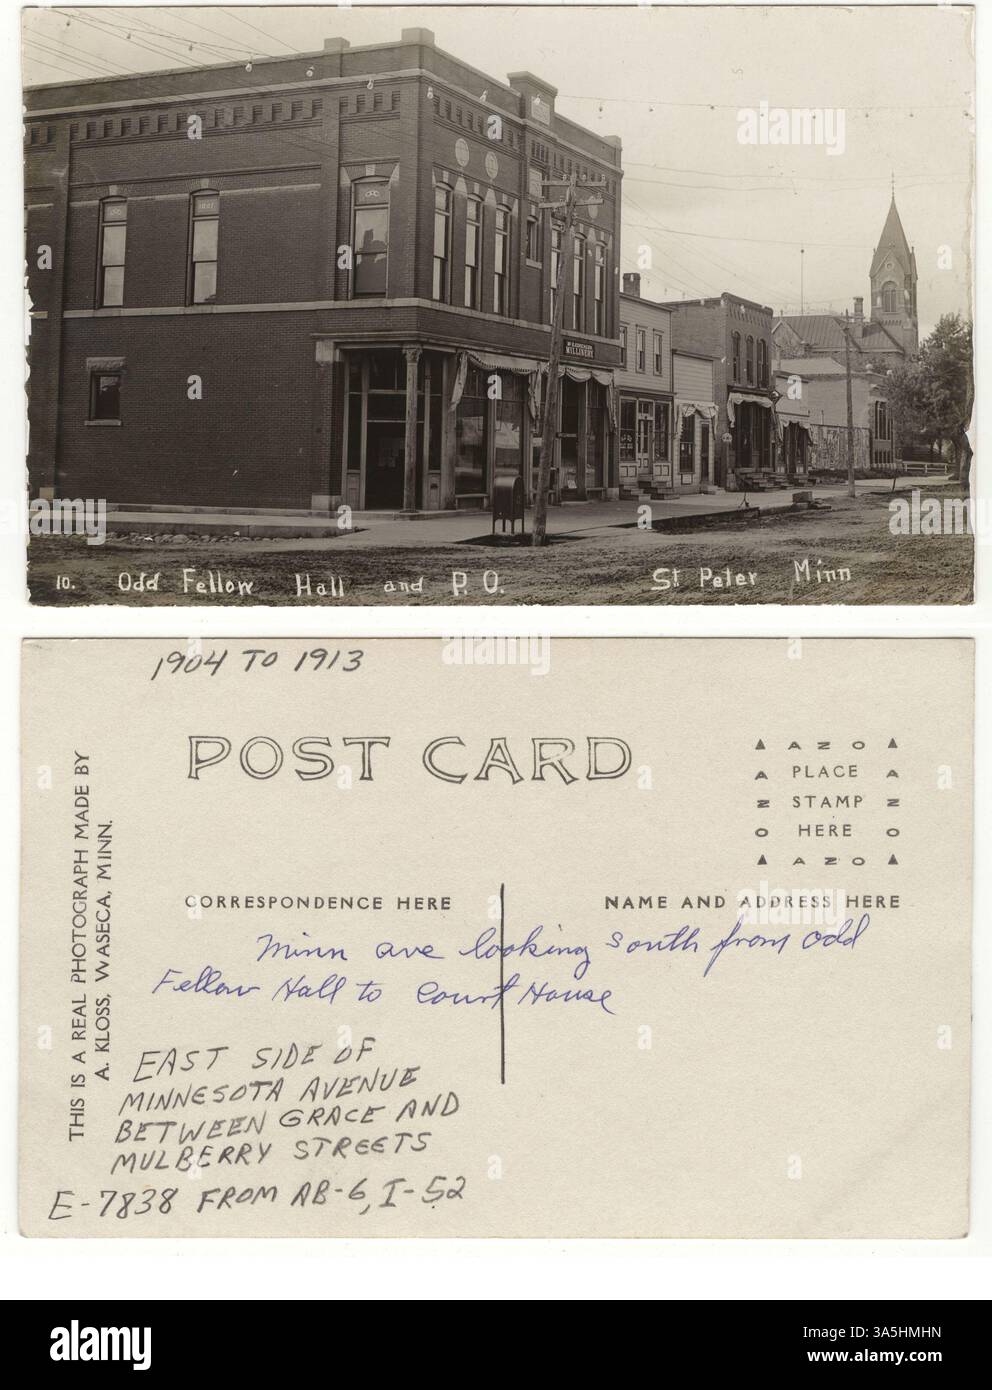 MILLINERY
10. Odd Fellow Hall and P.O. St Peter Minn
1904 TO 1913
POST CARD
THIS IS A REAL PHOTOGRAPH MADE BY
A. KLOSS, WASECA, MINN.
AZO
A PLACE A
Z STAMP Z
O HERE O
AZO
CORRESPONDENCE HERE
NAME AND ADDRESS HERE
Minn ave looking south from odd
Fellow Hall to Court House
EAST SIDE OF
MINNESOTA AVENUE
BETWEEN GRACE AND
MULBERRY STREETS
E-7838 FROM AB-6, I-52
alamy
Image ID: 3A5HMHN
www.alamy.com